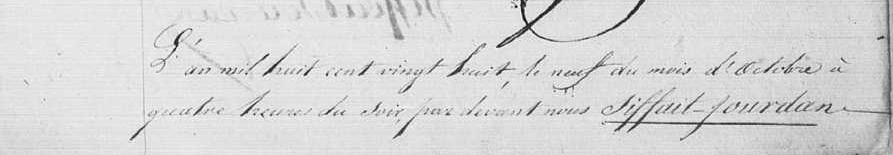 L'an mil huit cent vingt huit, le neuf du mois d'Octobre à
quatre heures du soir, par devant nous Siffait Jourdan